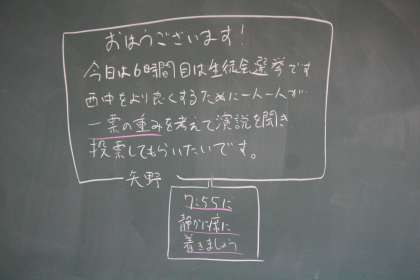 おはようございます!
今日は6時間目は生徒会選挙です
西中をより良くするために一人一人が
一票の重みを考えて演説を聞き
投票してもらいたいです。
矢野
7:55に
静かに席に
着きましょう